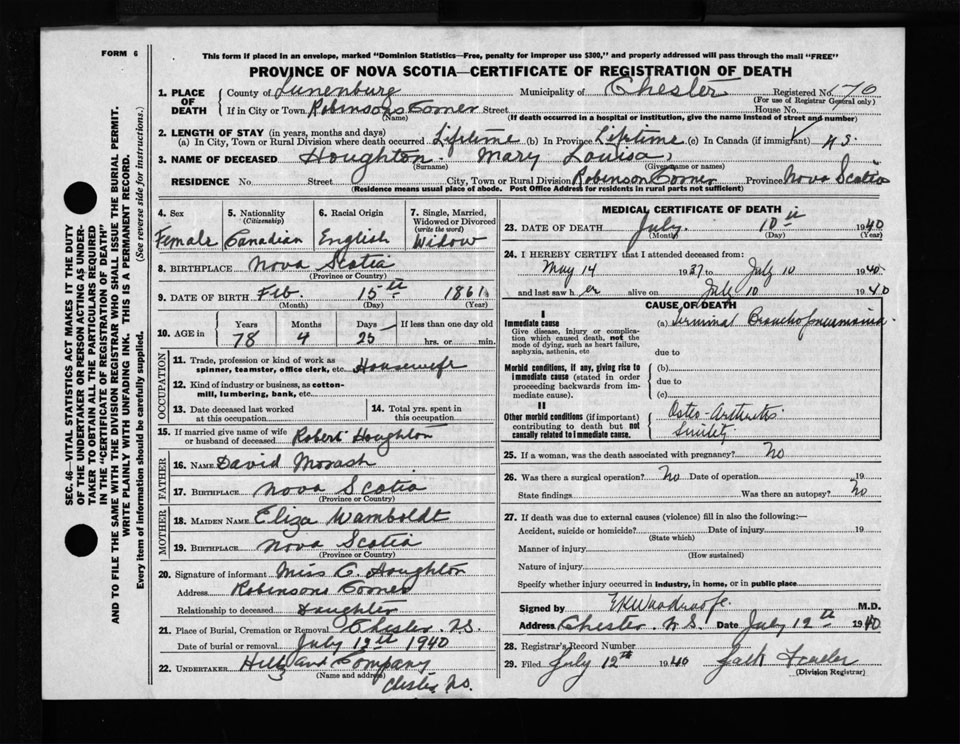 FORM 6
This form if placed in an envelope, marked "Dominion Statistics—Free, penalty for improper use $300," and properly addressed will pass through the mail "FREE"
PROVINCE OF NOVA SCOTIA—CERTIFICATE OF REGISTRATION OF DEATH
SEC. 46—VITAL STATISTICS ACT MAKES IT THE DUTY
OF THE UNDERTAKER OR PERSON ACTING AS UNDER-
TAKER TO OBTAIN ALL THE PARTICULARS REQUIRED
IN THE "CERTIFICATE OF REGISTRATION OF DEATH"
AND TO FILE THE SAME WITH THE DIVISION REGISTRAR WHO SHALL ISSUE THE BURIAL PERMIT.
WRITE PLAINLY WITH UNFADING INK. THIS IS A PERMANENT RECORD.
Every item of information should be carefully supplied. (See reverse side for instructions.)
1. PLACE OF DEATH County of Lunenburg Municipality of Chester Registered No. 70
(For use of Registrar General only)
If in City or Town Robinsons Corner Street House No.
(Name) (If death occurred in a hospital or institution, give the name instead of street and number)
2. LENGTH OF STAY (in years, months and days)
(a) In City, Town or Rural Division where death occurred Lifetime (b) In Province Lifetime (c) In Canada (if immigrant) N S.
3. NAME OF DECEASED Houghton. Mary Louisa
(Surname) (Given name or names)
RESIDENCE No. Street City, Town or Rural Division Robinson Corner Province Nova Scotia
(Residence means usual place of abode. Post Office Address for residents in rural parts not sufficient)
4. Sex Female
5. Nationality (Citizenship) Canadian
6. Racial Origin English
7. Single, Married, Widowed or Divorced (write the word) Widow
8. BIRTHPLACE Nova Scotia
(Province or Country)
9. DATE OF BIRTH Feb. 15th 1861
(Month) (Day) (Year)
10. AGE in Years Months Days If less than one day old
78 4 25 hrs. or min.
OCCUPATION
11. Trade, profession or kind of work as
spinner, teamster, office clerk, etc. Housewife
12. Kind of industry or business, as cotton-
mill, lumbering, bank, etc.
13. Date deceased last worked
at this occupation
14. Total yrs. spent in
this occupation
15. If married give name of wife
or husband of deceased Robert Houghton
FATHER
16. NAME David Morash
17. BIRTHPLACE Nova Scotia
(Province or Country)
MOTHER
18. MAIDEN NAME Eliza Wamboldt
19. BIRTHPLACE Nova Scotia
(Province or Country)
20. Signature of informant Miss C. Houghton
Address Robinsons Corner
Relationship to deceased Daughter
21. Place of Burial, Cremation or Removal Chester N.S.
Date of burial or removal July 12th 1940
22. UNDERTAKER Hiltz and Company
(Name and address) Chester N.S.
MEDICAL CERTIFICATE OF DEATH
23. DATE OF DEATH July. 10th 1940
(Month) (Day) (Year)
24. I HEREBY CERTIFY that I attended deceased from:
May 14 1937 to July 10 1940
and last saw her alive on July 10 1940
CAUSE OF DEATH
I
Immediate cause
Give disease, injury or complica-
tion which caused death, not the
mode of dying, such as heart failure,
asphyxia, asthenia, etc
(a) Terminal Bronchopneumonia.
due to
Morbid conditions, if any, giving rise to
immediate cause (stated in order
proceeding backwards from im-
mediate cause).
(b)
due to
(c)
II
Other morbid conditions (if important)
contributing to death but not
causally related to immediate cause.
Osteo-Arthritis
Senility
25. If a woman, was the death associated with pregnancy? No
26. Was there a surgical operation? No Date of operation 19
State findings Was there an autopsy? No
27. If death was due to external causes (violence) fill in also the following:—
Accident, suicide or homicide? Date of injury 19
(State which)
Manner of injury
(How sustained)
Nature of injury
Specify whether injury occurred in industry, in home, or in public place
Signed by M.D.
Address Chester. N.S. Date July 12th 1940
28. Registrar's Record Number
29. Filed July 12th 1940
(Division Registrar)